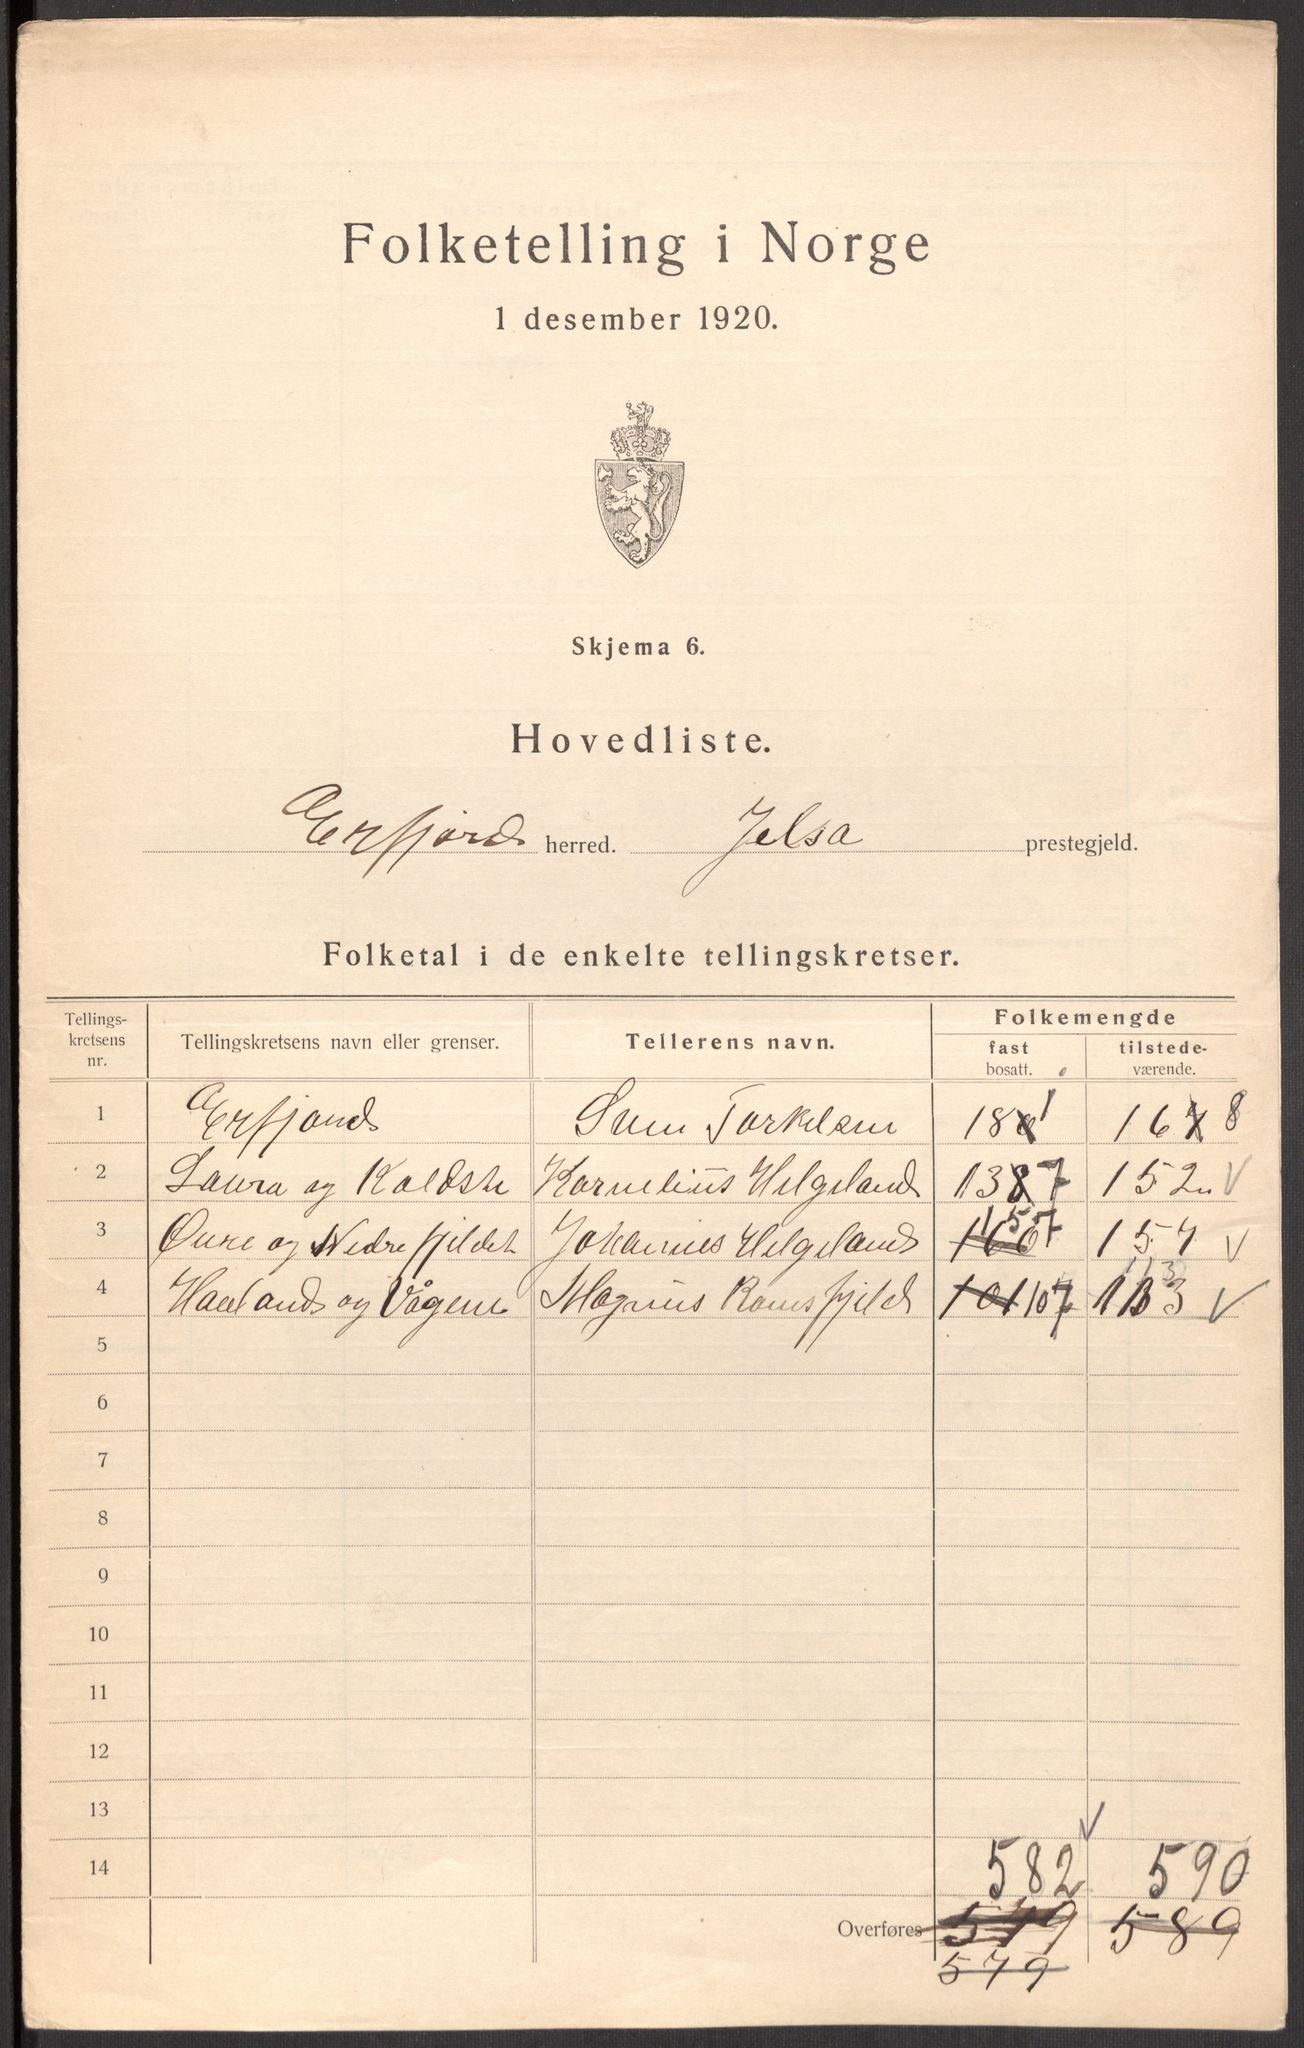 Folketelling i Norge
1 desember 1920.
Skjema 6.
Hovedliste.
Erfjord herred. Jelsa prestegjeld.
Folketal i de enkelte tellingskretser.
Tellings-kretsens nr. Tellingskretsens navn eller grenser. Tellerens navn. Folkemengde
fast bosatt. tilstede-værende.
1 Erfjord Torkelsen 181 168
2 og Kornelius Helgeland 137 152
3 Øvre og Nedre fjeldet Johannes Helgeland 157 157
4 Haaland og Vågene Magnus Ramsfjeld 101 107 113
5
6
7
8
9
10
11
12
13
14 582 590
Overføres 579 589
579